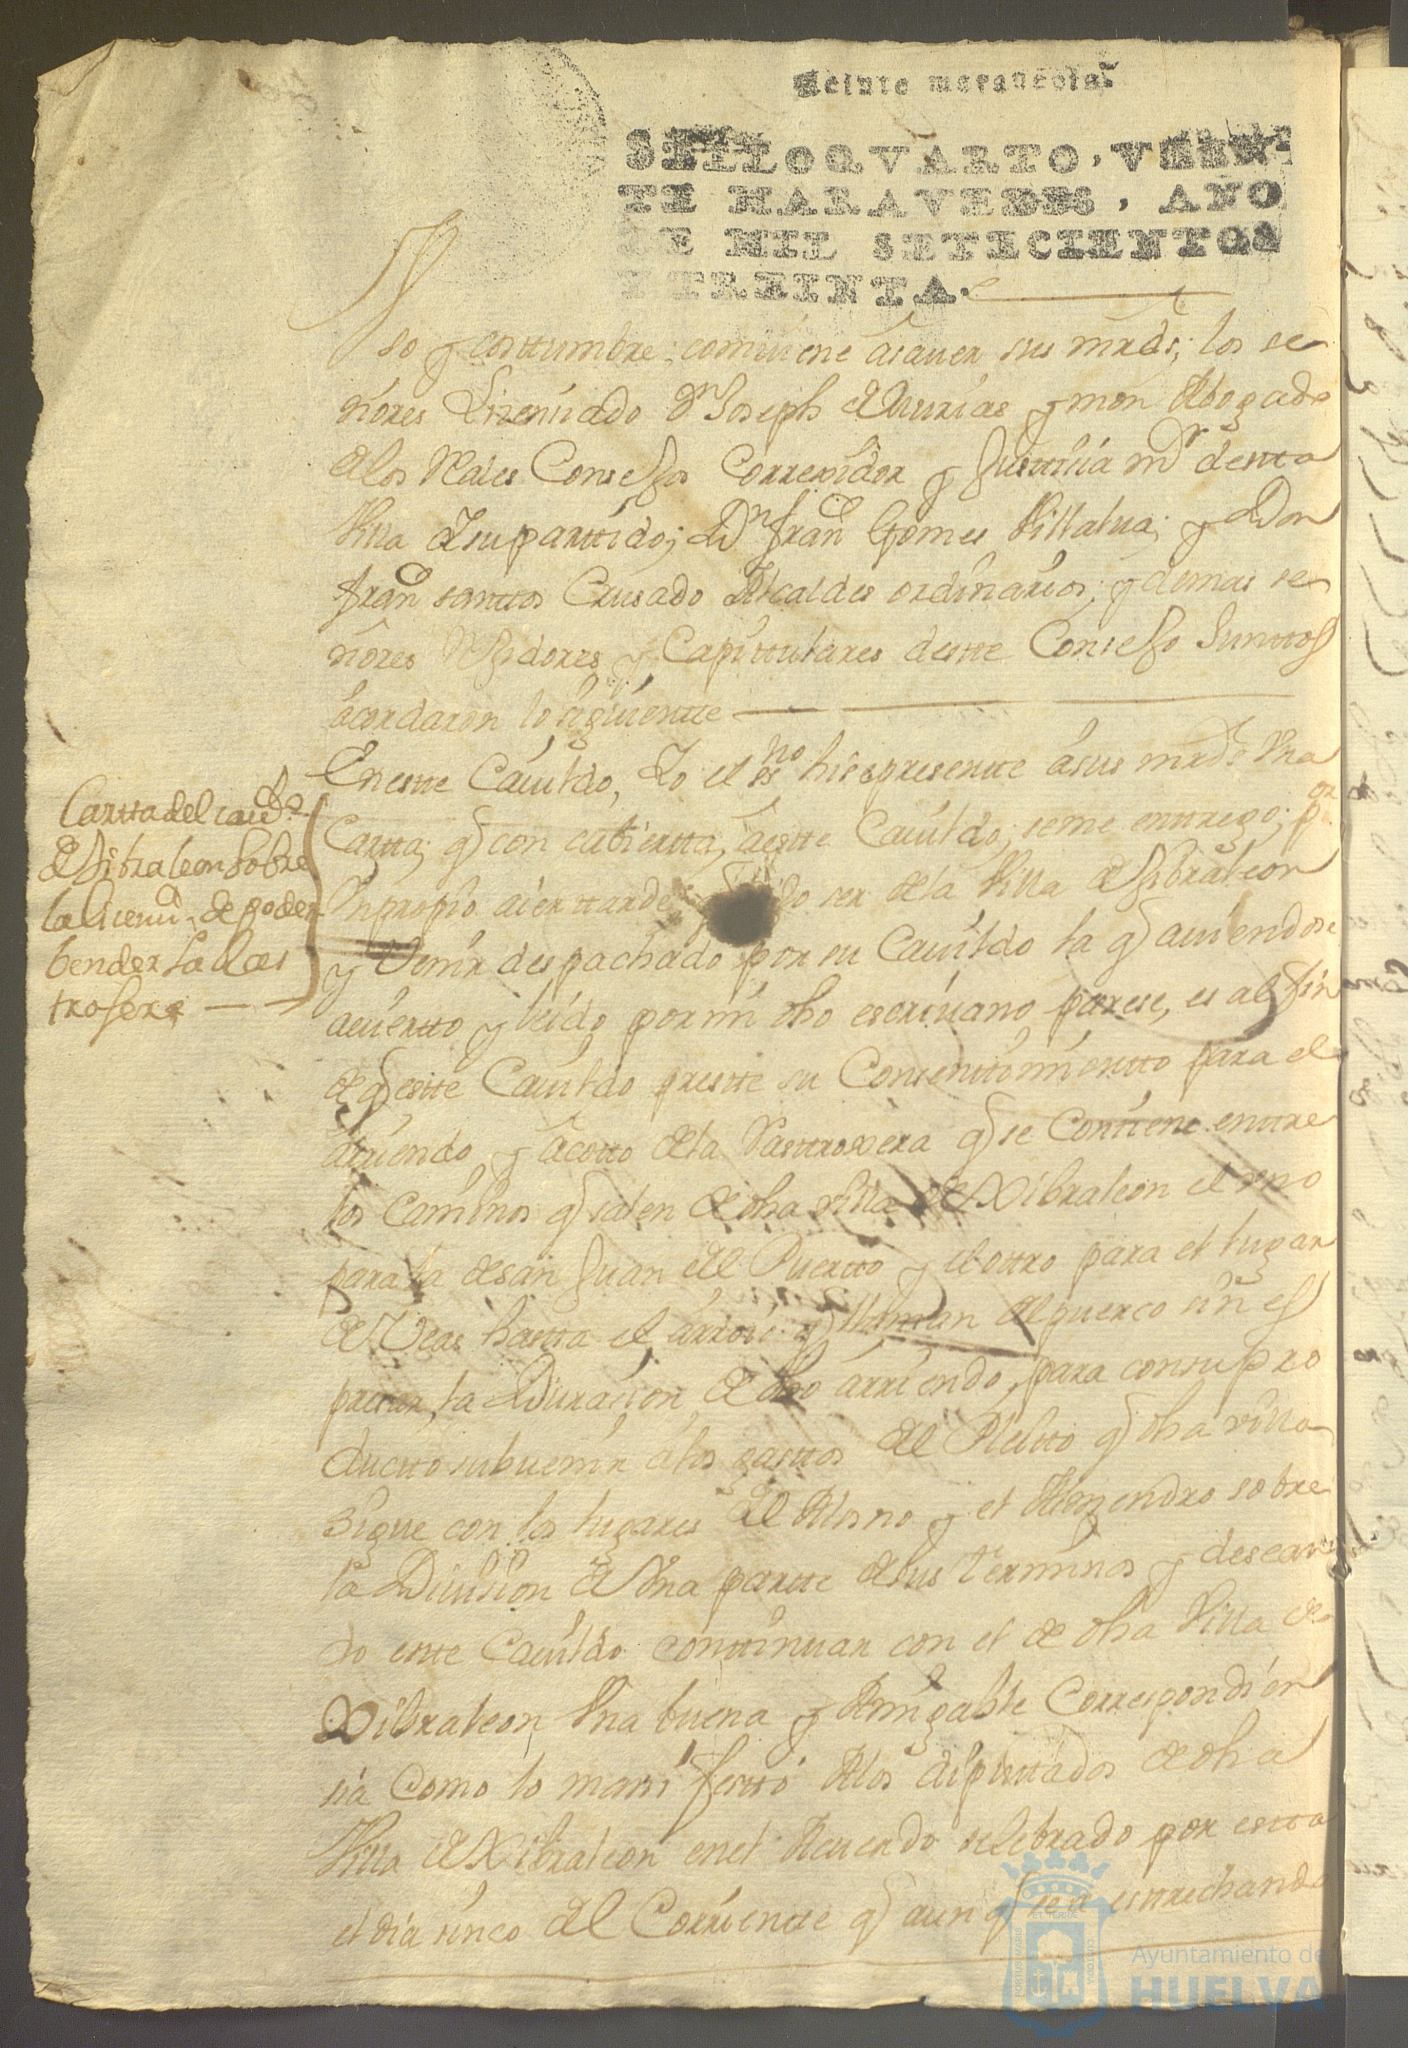 Veinte maravedis.
SELLO QVARTO, VEIN-
TE MARAVEDIS, AÑO
DE MIL SETECIENTOS
Y TREINTA.
Vso y costtumbre; combiene a sauer sus mrds; los se
ñores Lizenciado Dn Joseph de Aurias y mon Abogado
de los Rales Consejos Correxidor y Justticia mr destta
Villa y su parttido; Dn Franco Gomes Villalua; y Don
Franco santtos Crusado Alcaldes ordinarios; y demas se
ñores Rejidores y Capittulares destte Consejo Junttos
acordaron lo siguientte
En estte Cauildo, Yo el esno hise presentte a sus mrds Vna
Cartta; q con cubiertta, a estte Cauildo; se me enttrego; por
Vn propio aier ttarde; ser de la Villa de Jibraleon
y Venir despachado por su Cauildo la q auiendose
auiertto y leido por mi dho escriuano parese, es al fin
de q estte Cauildo prestte su Consenttimientto para el
arriendo y acotto de la Rasttroxera q se Conttiene enttre
los Caminos q salen de dha villa de Xibraleon el vno
para la de san Juan del Puertto y el ottro para el lugar
de Veas hastta el arroio q llaman del puerco sin es
presar, la Durasion de dho arriendo, para con su pro
ductto subuenir a los gasttos del Pleitto q dha villa
Sigue con los lugares del Alosno y el Almendro sobre
la Diuision de Vna partte de sus terminos y desean
do estte Cauildo conttinuar con el de dha Villa de
Xibraleon, Vna buena y Amigable Correspondien
sia Como lo manifestto a los diputtados de dha
Villa de Xibraleon en el Acuerdo selebrado por estta
el dia sinco del Corrientte q aun q sea esttrechando
Cartta del cauildo
de Jibraleon sobre
la licencia de poder
bender la Ras
trojera
Ayuntamiento de
HUELVA